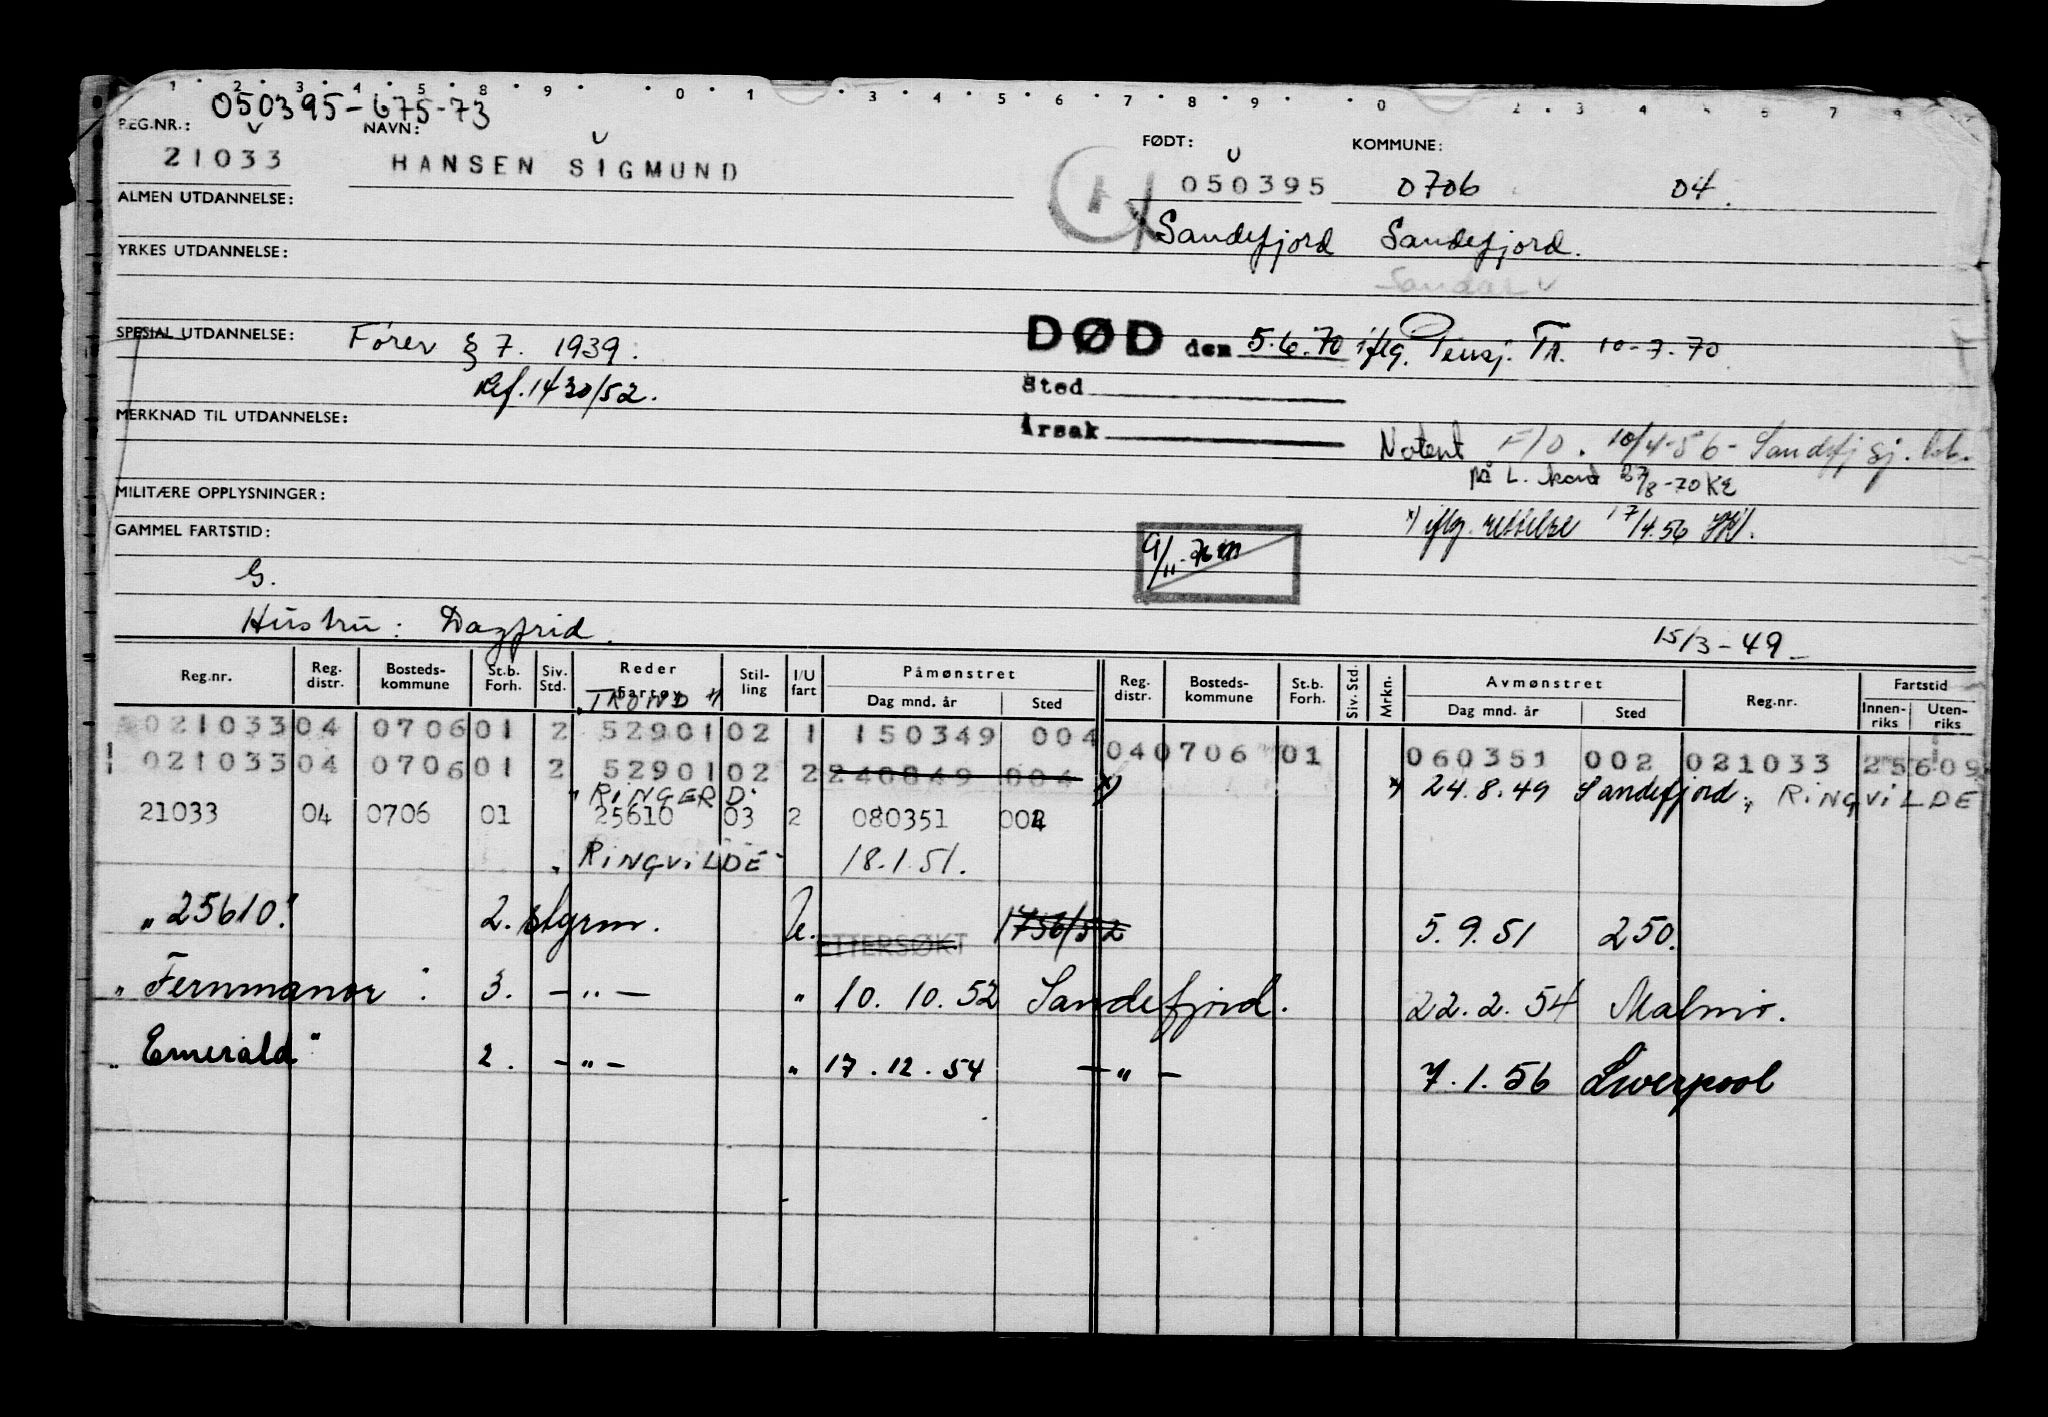 050395-675-73
REG.NR.: NAVN: FØDT: KOMMUNE:
21033 HANSEN SIGMUND 050395 0706 04.
ALMEN UTDANNELSE:
Sandefjord Sandefjord.
YRKES UTDANNELSE:
Sandar
SPESIAL UTDANNELSE: Fører § 7. 1939. DØD den 5.6.70 iflg. Pensj. Tr. 10-7-70
Ref. 1430/52. Sted
MERKNAD TIL UTDANNELSE: Årsak
Notert F/D. 10/4-56 - Sandefj sj.
på L. kort 27/8-70 KE
MILITÆRE OPPLYSNINGER:
x) iflg. rettelse 17/4.56
GAMMEL FARTSTID:
9/11-
G.
Hustru: Dagfrid.
15/3-49
Reg.nr. Reg. distr. Bosteds-kommune St.b. Forh. Siv. Std. Reder Fartøy Stil-ling I/U fart Påmønstret Dag mnd. år Sted Reg. distr. Bosteds-kommune St.b. Forh. Siv. Std. Mrkn. Avmønstret Dag mnd. år Sted Reg.nr. Fartstid Innen-riks Uten-riks
"TROND" x)
021033 04 0706 01 2 52901 02 1 150349 004 04 0706 01 060351 002 021033 25609
021033 04 0706 01 2 52901 02 2 240849 004 x) x) 24.8.49 Sandefjord. "RINGVILDE
"RINGERD"
21033 04 0706 01 25610 03 2 080351 002
"RINGVILDE" 18.1.51.
"25610" 2. styrm. U. 1756/52 5.9.51 250.
ETTERSØKT
"Fernmanor" 3. —"— " 10.10.52 Sandefjord. 22.2.54 Malmø.
"Emerald" 2. —"— " 17.12.54 —"— 7.1.56 Liverpool